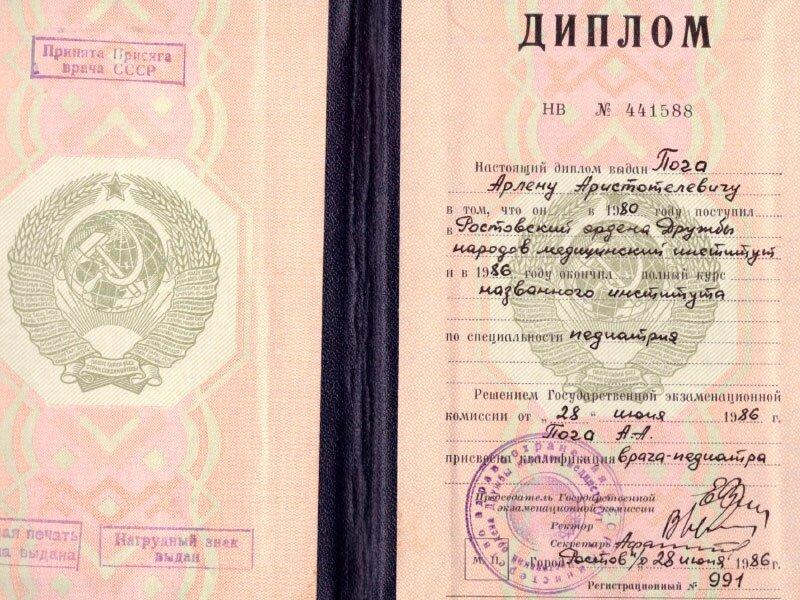 Принята Присяга
врача СССР
ая печать
а выдана
Нагрудный знак
выдан
ДИПЛОМ
НВ № 441588
Настоящий диплом выдан Пога
Арлену Аристотелевичу
в том, что он в 1980 году поступил
в Ростовский ордена Дружбы
народов медицинский институт
и в 1986 году окончил полный курс
названного института
по специальности педиатрия
Решением Государственной экзаменационной
комиссии от „28“ июня 1986 г.
Пога А.А.
присвоена квалификация врача-педиатра
Председатель Государственной
экзаменационной комиссии
Ректор
Секретарь
М. П. Город Ростов н/Д 28 июня 1986 г.
Регистрационный № 991